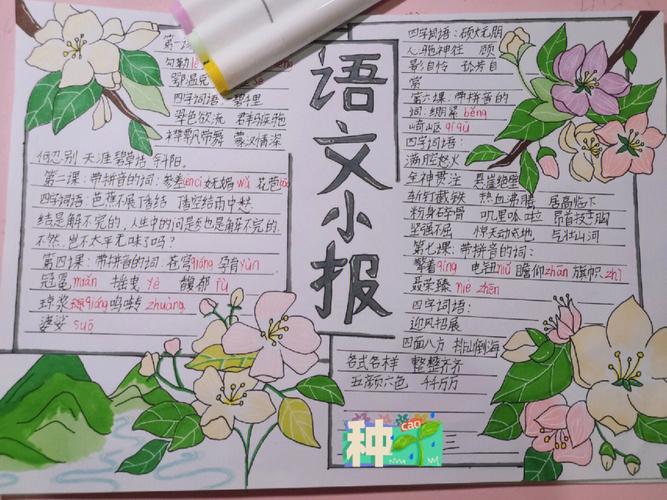 语文小报
第一
勾勒
鄂温克
四字词语 翠色欲流
襟飘带舞 蒙汉情深
何忍别 天涯碧草话斜阳。
第二课：带拼音的词：参差cēncī 妩媚wǔ 花苞
四字词语 芭蕉不展丁香结 雨中愁
结是解不完的，人生中的问题也是解不完的，
不然，岂不太平无味了吗？
第四课：带拼音的词 苍穹qióng 孕育yùn
冠冕miǎn 摇曳yè 馥郁fù
琼浆qióng 鸣转zhuǎng
婆娑suō
四字词语：硕大无朋
心驰神往 顾
影自怜 孤芳自
赏
第六课：带拼音的
词：绷紧bēng
崎岖qíqū
四字词语：
满腔怒火
全神贯注 悬崖绝壁
斩钉截铁 热血沸腾 居高临下
粉身碎骨 叽里呱啦 昂首挺胸
坚强不屈 惊天动地 气壮山河
第七课：带拼音的词：
擎着qíng 电钮niǔ 瞻仰zhān 旗帜zhì
聂荣臻niè zhēn
四字词语：
迎风招展
四面八方 排山倒海
各式各样 整整齐齐
五颜六色 千千万万
种
cao